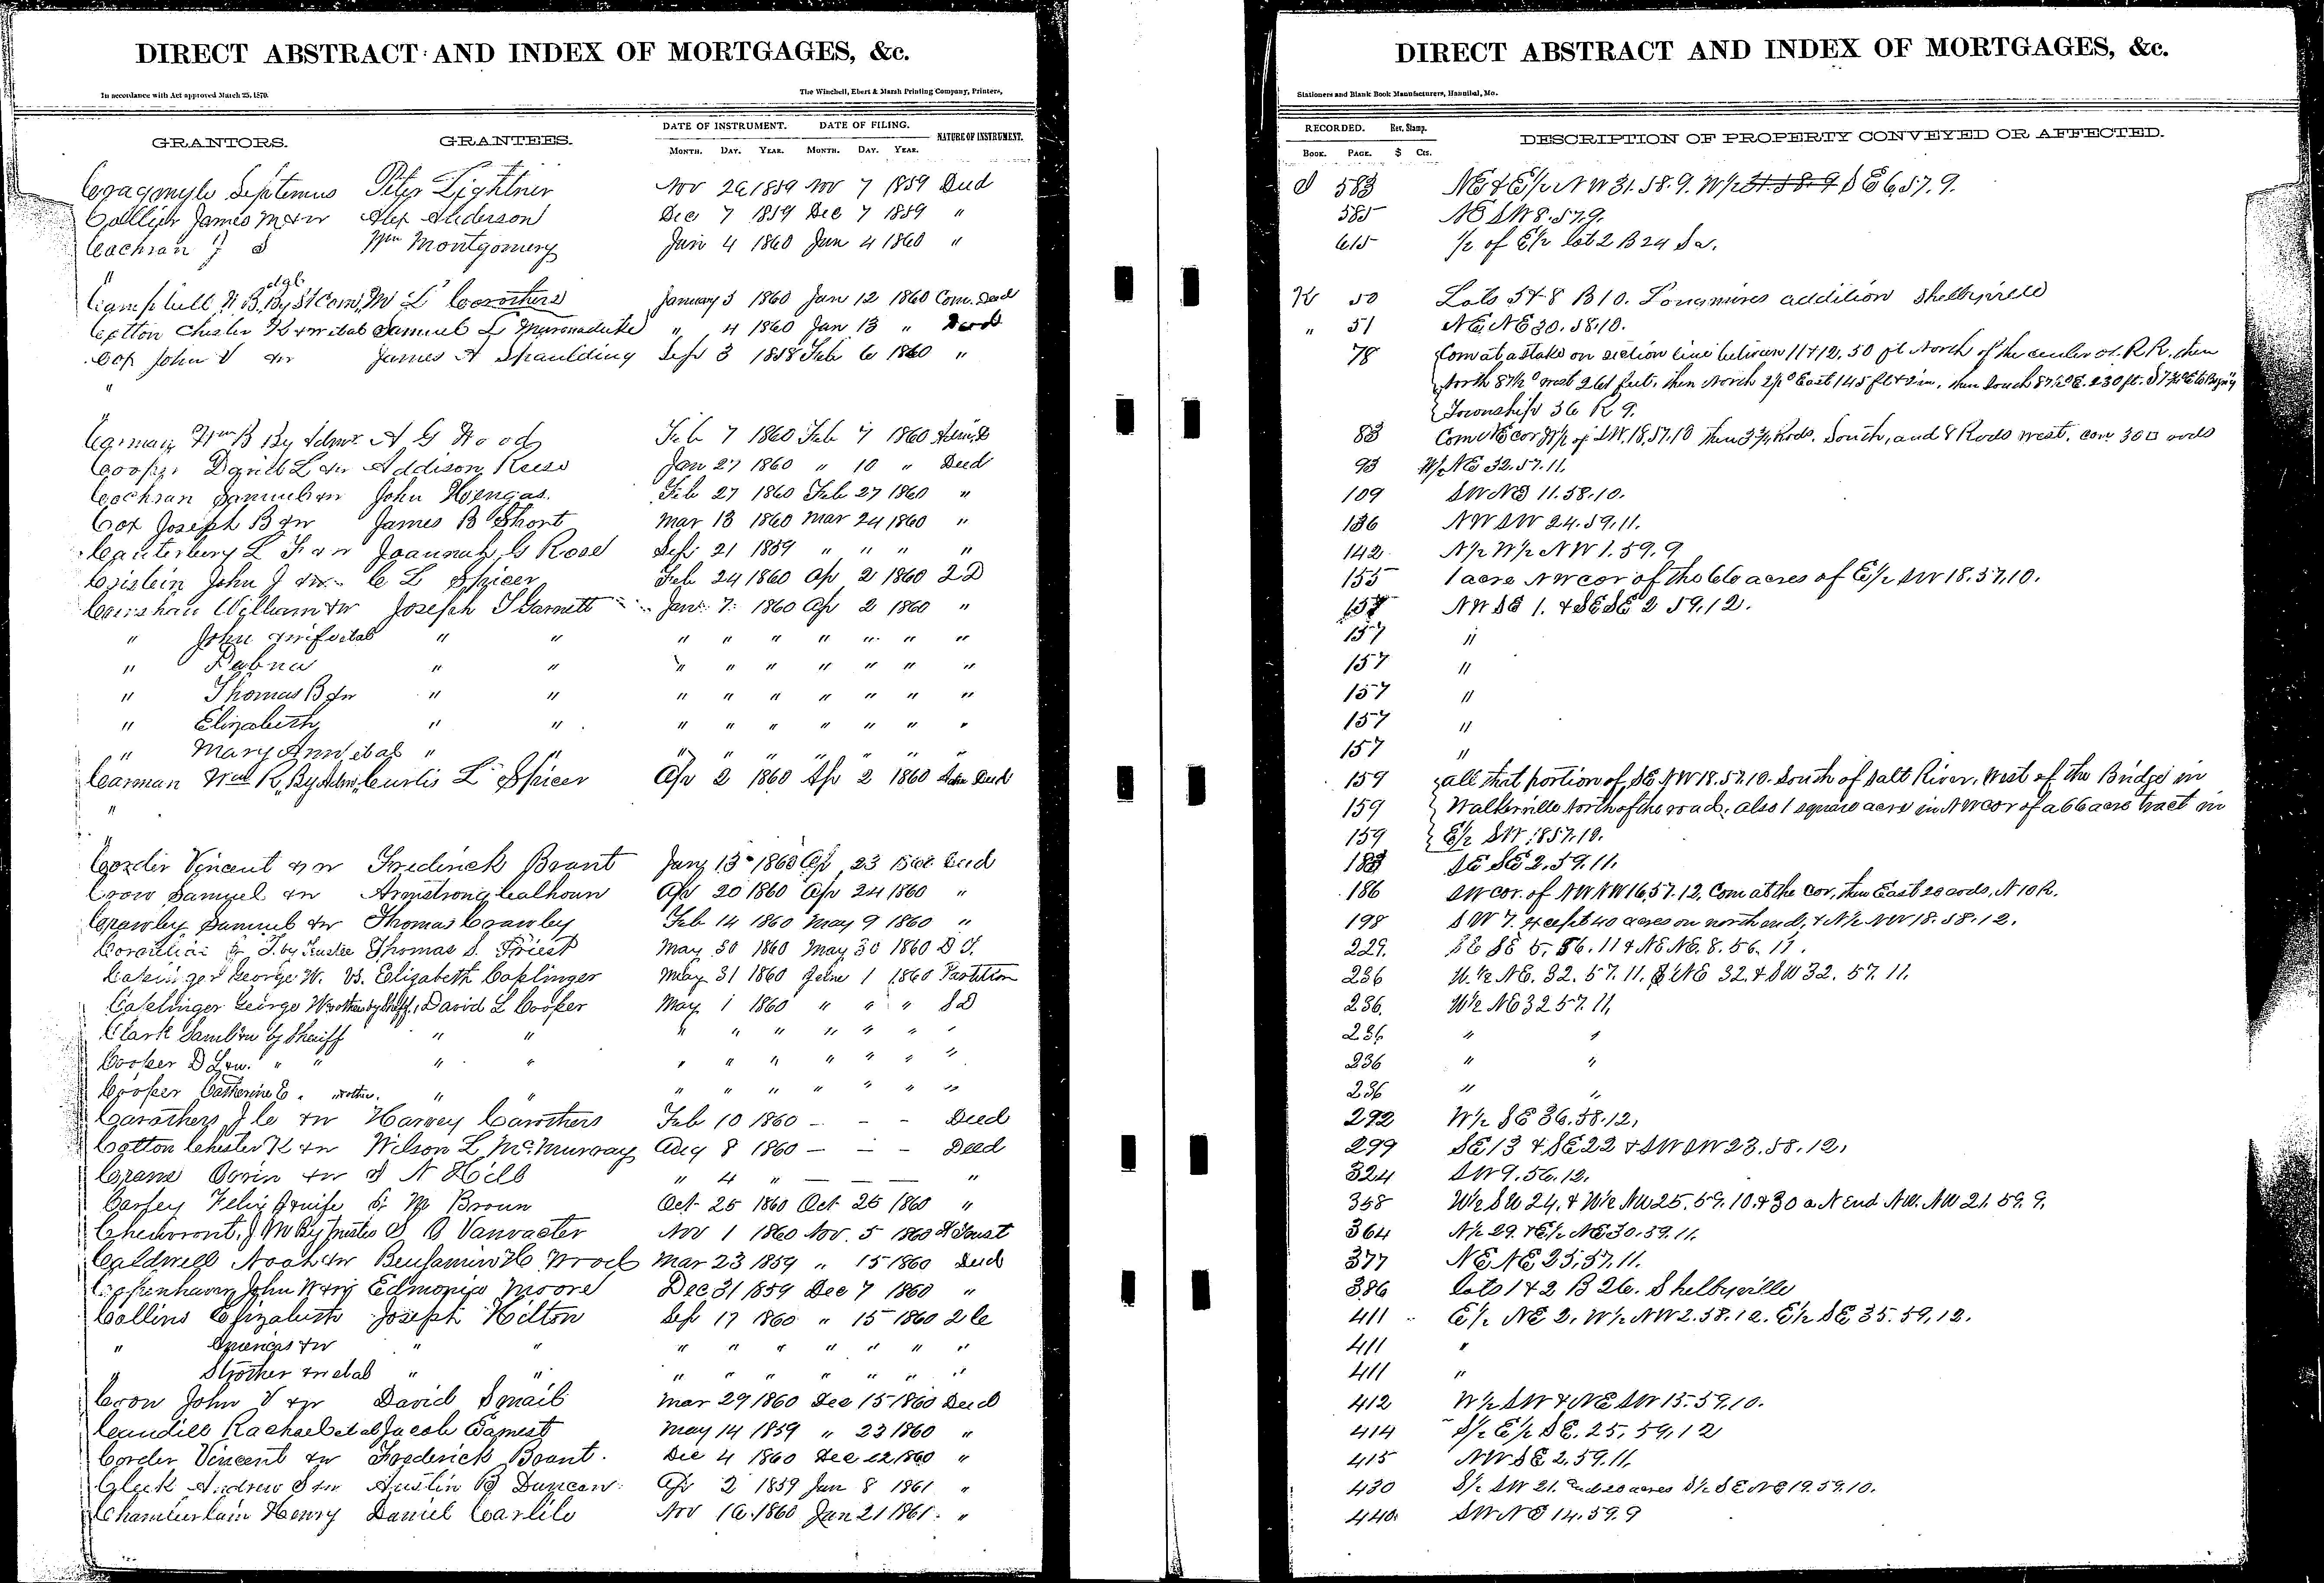 DIRECT ABSTRACT AND INDEX OF MORTGAGES, &c.
In accordance with Act approved March 25, 1870.
The Winchell, Ebert & Marsh Printing Company, Printers,
GRANTORS. GRANTEES. DATE OF INSTRUMENT. DATE OF FILING. NATURE OF INSTRUMENT.
MONTH. DAY. YEAR. MONTH. DAY. YEAR.
Septimus Peter Lightner Nov 26 1859 Nov 7 1859 Deed
Collier James M & w Alex Anderson Dec 7 1859 Dec 7 1859 "
Cochran J S Wm Montgomery Jan 4 1860 Jan 4 1860 "
"
Campbell By St Com, M L Corothers January 3 1860 Jan 12 1860 Com. Deed
Cotton Chester K & w et al Samuel L Marmaduke " 4 1860 Jan 13 " Deed
Cox John V & w James A Spaulding Sept 3 1858 Feb 6 1860 "
"
Carman Wm B By Admr A G Wood Feb 7 1860 Feb 7 1860 Admr D
Cooper David L & w Addison Reese Jan 27 1860 " 10 " Deed
Cochran Samuel & w John Feb 27 1860 Feb 27 1860 "
Cox Joseph B & w James B Short Mar 13 1860 Mar 24 1860 "
Canterbury L F & w Joannah G Rose Sept 21 1859 " " " "
John J & w C L Spicer Feb 24 1860 Ap 2 1860 2 D
William & w Joseph S Garnett Jan 7 1860 Ap 2 1860 "
" John & wife et al " " " " " " " " "
" " " " " " " " " "
" Thomas B & w " " " " " " " " "
" Elizabeth " " " " " " " " "
" Mary Ann et al " " " " " " " " "
Carman Wm R, By Adm, Curtis L Spicer Ap 2 1860 Ap 2 1860 Adm Deed
"
"
Corder Vincent & w Frederick Brant Jany 13 1860 Ap 23 1860 Deed
Crow Samuel & w Armstrong Calhoun Ap 20 1860 Ap 24 1860 "
Crawley Samuel & w Thomas Crawley Feb 14 1860 May 9 1860 "
by Trustee Thomas S. Priest May 30 1860 May 30 1860 D T.
George W. Vs. Elizabeth Caplinger May 31 1860 June 1 1860 Partition
Caplinger George W & others by Shff, David L Cooper May 1 1860 " " " S D
Clark Saml & w by Sheriff " " " " " " " " "
Cooper D L & w. " " " " " " " " " " "
Cooper Catherine E " & others. " " " " " " " " "
Carothers J C & w Harvey Carothers Feb 10 1860 – – – Deed
Cotton Chester K & w Wilson L McMurray Aug 8 1860 – – – Deed
Crane Orrin & w J N Hills " 4 " — — — "
Felix & wife S. M Broun Oct 25 1860 Oct 25 1860 "
Cheuvront, J M By Trustee S B Vanvacter Nov 1 1860 Nov. 5 1860 D Trust
Caldwell Noah & w Benjamin H Mar 23 1859 " 15 1860 Deed
Copenhaver John W & w Edmonia Moore Dec 31 1859 Dec 7 1860 "
Collins Elizabeth Joseph Hilton Sept 17 1860 " 15 1860 2 C
" & w " " " " " " " " "
" Strother & w et al " " " " " " " " "
Cron John V & w David Smail Mar 29 1860 Dec 15 1860 Deed
Caudill Rachael et al Jacob May 14 1859 " 23 1860 "
Corder Vincent & w Frederick Brant. Dec 4 1860 Dec 22 1860 "
Cleek Andrew S & w Austin B Duncan Ap 2 1859 Jan 8 1861 "
Chamberlain Henry Daniel Carlile Nov 16 1860 Jan 21 1861. "
DIRECT ABSTRACT AND INDEX OF MORTGAGES, &c.
Stationers and Blank Book Manufacturers, Hannibal, Mo.
RECORDED. Rev. Stamp. DESCRIPTION OF PROPERTY CONVEYED OR AFFECTED.
BOOK. PAGE. $ Cts.
J 583 NE & E½ NW 31. 58. 9. W½ 31. 58. 9 SE 6, 57. 9.
585 NE SW 8. 57. 9.
615 ½ of E½ lot 2 B 24
K 50 Lots 5 & 8 B 10. Longmires addition Shelbyville
" 51 NE NE 30. 58. 10.
78 Com at a stake on section line between 11 & 12, 50 ft North of the center of R R. then
North 87½° west 261 feet, then North 2½° East 145 ft & 2 in, then South 87½° E. 230 ft.
Township 56 R 9.
83 Com NE cor W½ of SW. 18, 57. 10 then 3¾ Rods. South, and 8 Rods West. con 30 □ rods
93 W½ NE 32. 57. 11.
109 SW NE 11. 58. 10.
136 NW SW 24. 59. 11.
142 N½ W½ NW 1. 59. 9
155 1 acre NW cor of the 66 acres of E½ SW 18. 57. 10.
157 NW SE 1. & SE SE 2 59. 12.
157 "
157 "
157 "
157 "
157 "
159 all that portion of SE NW 18. 57. 10. South of Salt River, West of the Bridge in
159 Walkerville North of the road. also 1 square acre in NW cor of a 66 acre tract in
159 E½ SW 18 57. 10.
183 SE SE 2. 59. 11.
186 SW cor. of NW NW 16, 57. 12, Com at the cor, then East 20 rods, N 10 R.
198 SW 7. except 40 acres on north end, & N½ NW 18. 58. 12.
229. SE SE 5, 56. 11 & NE NE. 8. 56. 11.
236 W. ½ NE. 32. 57. 11. NE 32. & SW 32. 57. 11.
236. W½ NE 32 57. 11,
236 " "
236 " "
236 " "
292 W½ SE 36. 58. 12,
299 SE 13 & SE 22 & SW SW 23. 58. 12,
324 SW 9. 56. 12.
358 W½ SW 24, & W½ NW 25. 59. 10. & 30 a. N end NW. NW 21. 59. 9.
364 N½ 29. & E½ NE 30. 59. 11.
377 NE NE 25, 57. 11.
386 lots 1 & 2 B 26. Shelbyville
411 E½ NE 2. W½ NW 2. 58. 12. E½ SE 35. 59, 12.
411 "
411 "
412 W½ SW & NE SW 15. 59, 10.
414 S½ E½ SE. 25, 59, 12
415 NW SE 2. 59. 11.
430 S½ SW 21. and 20 acres S½ SE NE 19. 59. 10.
440. SW NE 14. 59. 9